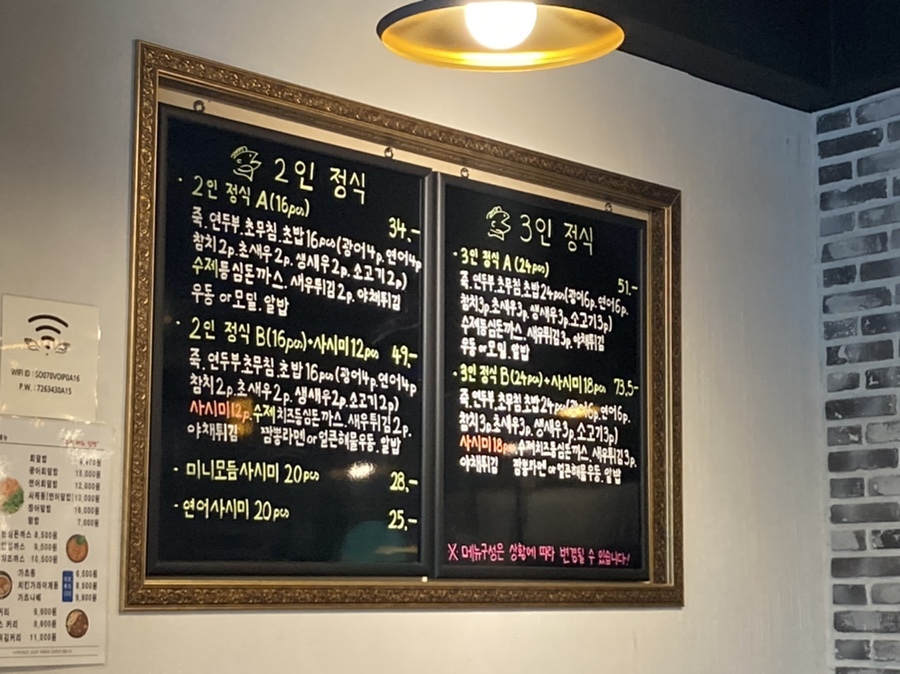 2인 정식
· 2인 정식 A(16pcs) 34.-
죽.연두부.초무침.초밥16pcs(광어4p,연어4p
참치2p.초새우2p.생새우2p.소고기2p)
수제등심돈까스. 새우튀김2p. 야채튀김
우동 or 모밀. 알밥
· 2인 정식 B(16pcs)+사시미12pcs 49,-
죽.연두부.초무침.초밥16pcs(광어4p.연어4p
참치2p.초새우2p.생새우2p.소고기2p)
사시미12p.수제치즈등심돈까스. 새우튀김2p.
야채튀김 짬뽕라멘 or 얼큰해물우동.알밥
· 미니모듬사시미 20pcs 28,-
· 연어사시미 20pcs 25,-
3인 정식
· 3인 정식 A (24pcs) 51.-
죽.연두부.초무침.초밥24pcs(광어6p.연어6p.
참치3p.초새우3p.생새우3p.소고기3p)
수제등심돈까스. 새우튀김3p. 야채튀김
우동 or 모밀. 알밥
· 3인 정식 B(24pcs)+사시미18pcs 73,5-
죽.연두부.초무침.초밥24pcs(광어6p.연어6p.
참치3p.초새우3p.생새우3p.소고기3p)
사시미18pcs.수제치즈등심돈까스.새우튀김3p.
야채튀김 짬뽕라멘 or 얼큰해물우동.알밥
※ 메뉴구성은 상황에 따라 변경될 수 있습니다!
WIFI ID : SO070VOIP0A16
P.W. : 7263430A15
회덮밥
광어회덮밥
연어회덮밥
사케동(연어덮밥)
장어덮밥
알밥 7,000
가츠동
치킨가라아게동
가츠나베
11,000원